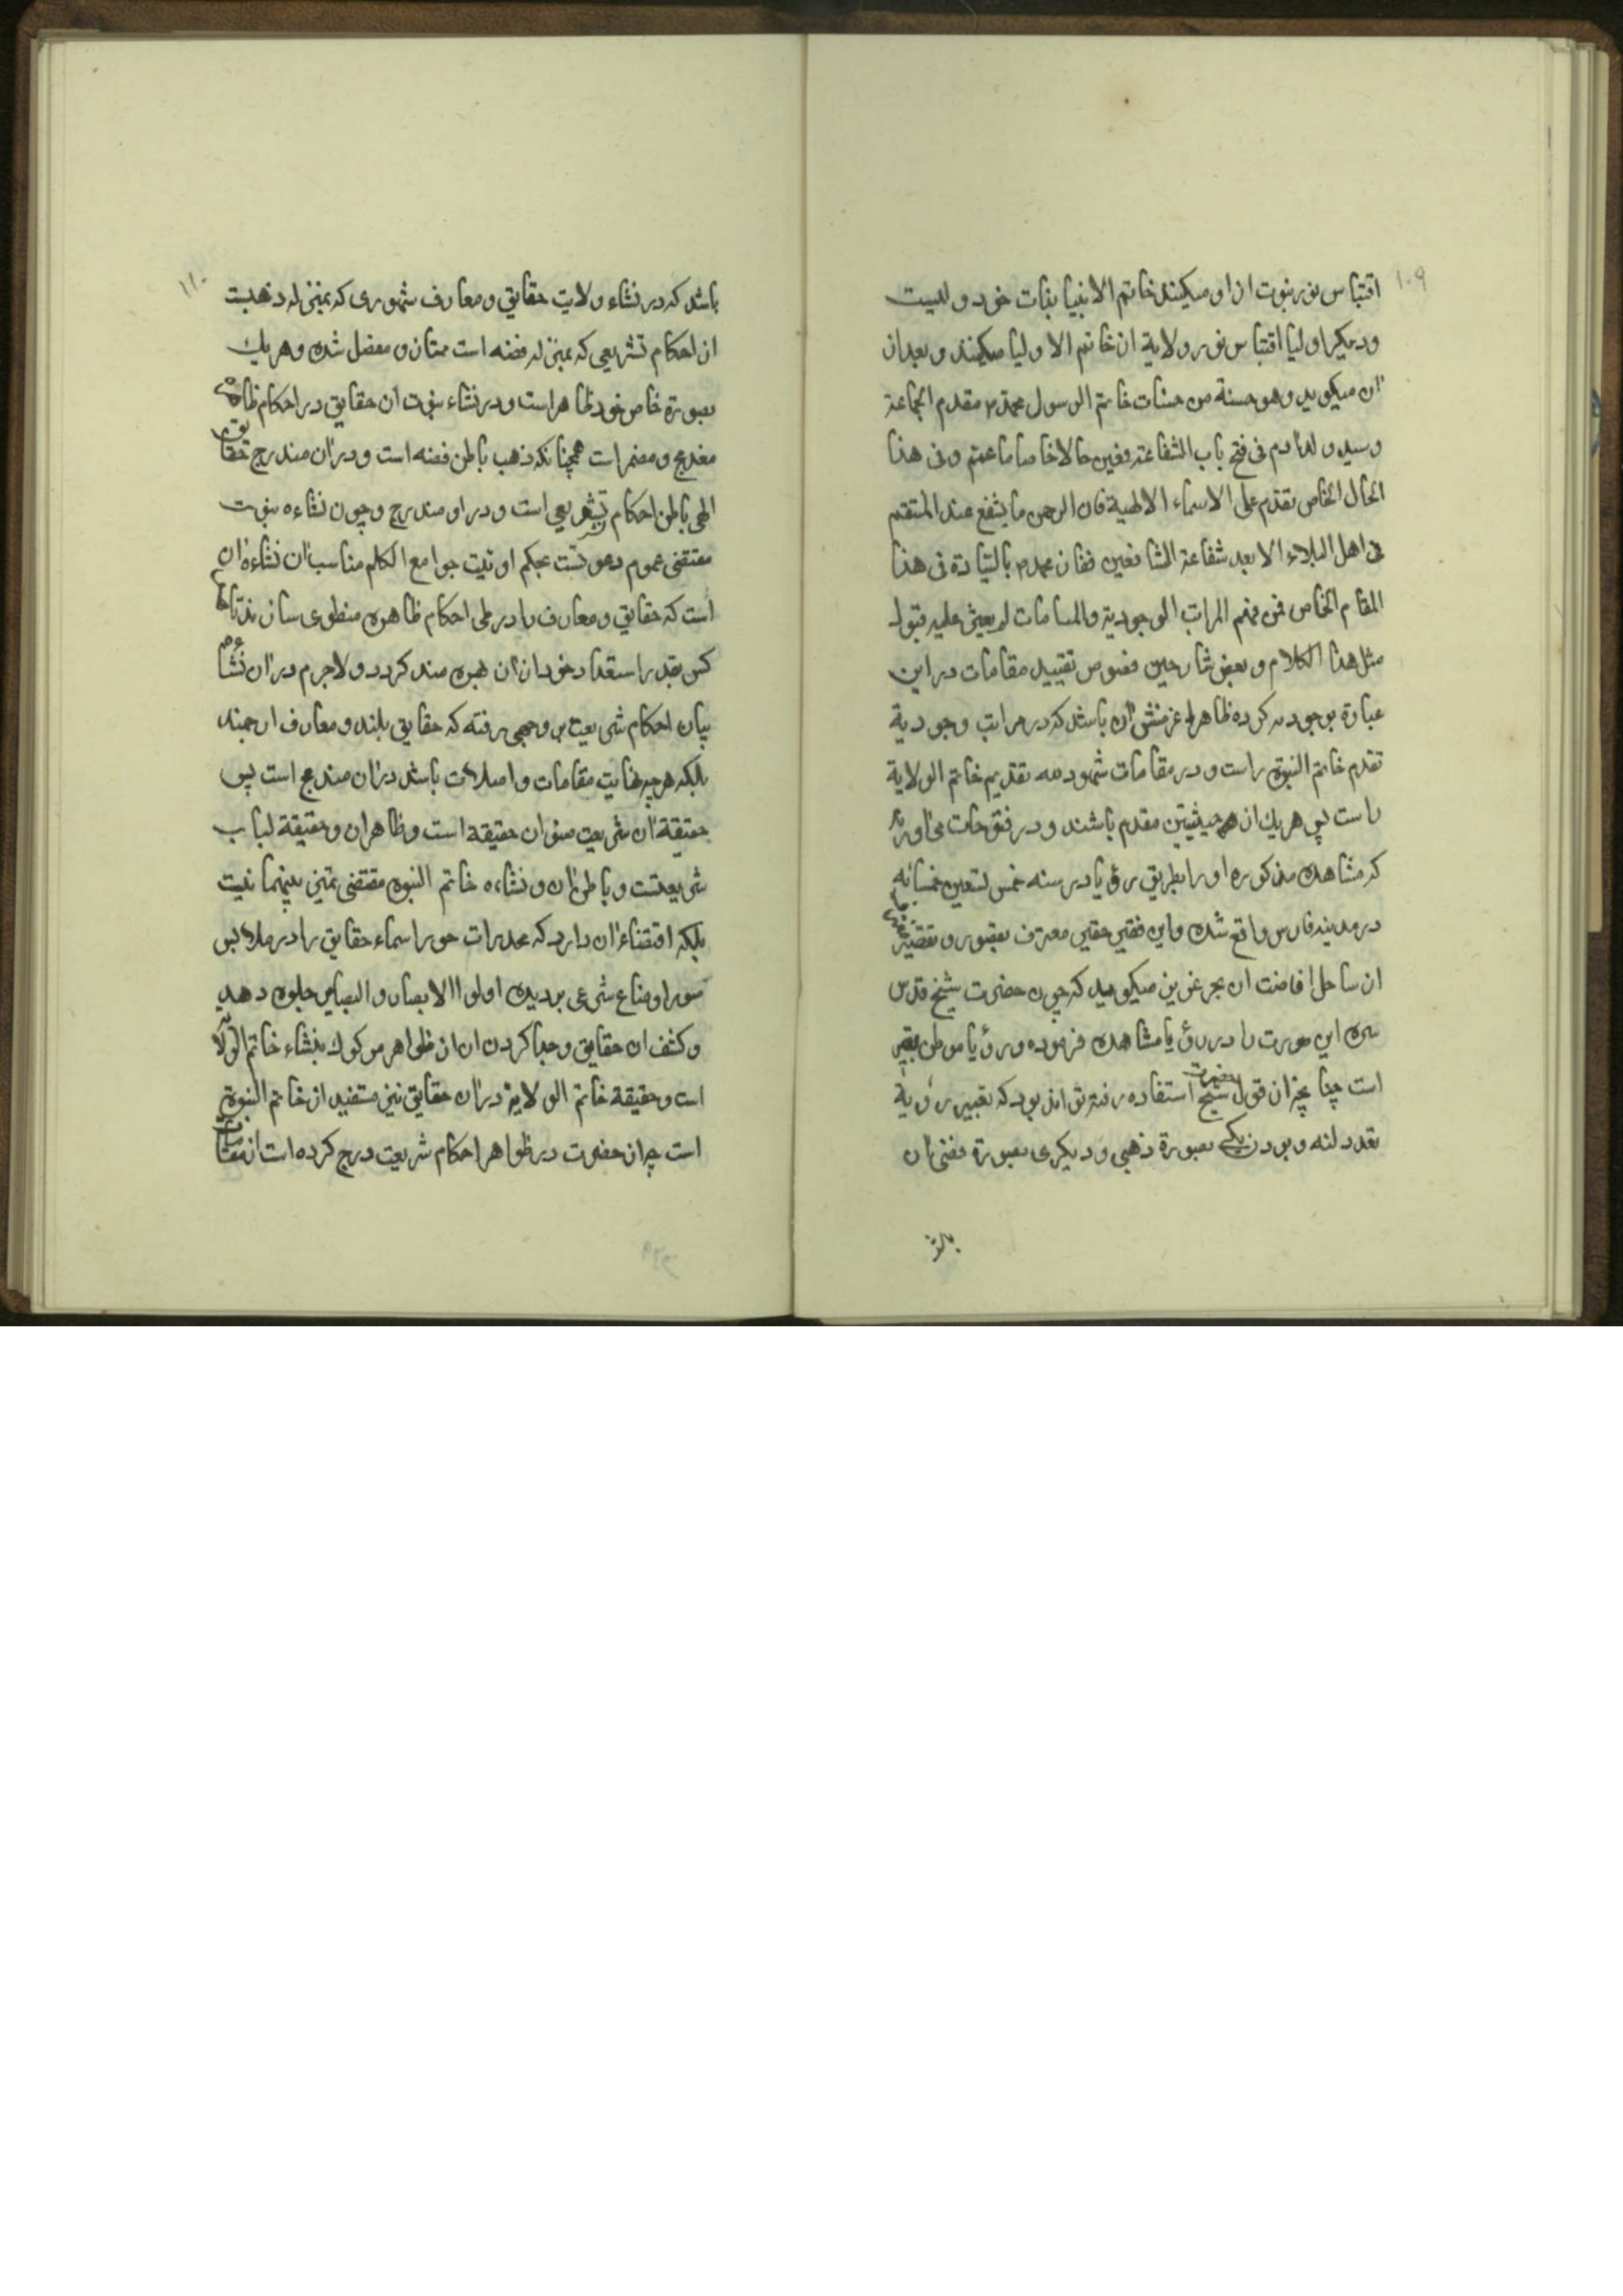 ۱۰۹
اقتباس نور نبوت از او میکیند خاتم الانبیا بذات خود ولیست
و دیکر اولیا اقتباس نور ولایة از خاتم الاولیا میکنند و بعد از
ان میکوید و هو حسنة من حسنات خاتم الرسول محمد م مقدم الجماعة
و سید ولد ادم فی فتح باب الشفاعة فعین حالا خاصا ما عمم و فی هذا
الحال الخاص تقدم علی الاسماء الالهیة فان الرحمن ما یشفع عند المنتقم
فی اهل البلاء الا بعد شفاعة الشافعین ففاز محمد م بالسیادة فی هذا
المقام الخاص فمن فهم المراتب الوجودیة والمقامات لم یعسر علیه قبول
مثل هذا الکلام و بعض شارحین فصوص تقیید مقامات در این
عبارة بوجودیه کرده ظاهرا غرضش ان باشد که در مراتب وجودیة
تقدم خاتم النبوة راست و در مقامات شهودیه تقدیم خاتم الولایة
راست پس هریك از حیثیتین مقدم باشند و در فتوحات می اورد
که مشاهده مذکوره او را بطریق رؤیا در سنه خمس تسعین خمسمائه
در مدینه فاس واقع شده و این فقیر حقیر معترف بقصور و تقصیر
از ساحل افاضت ان بحر عزیز میکوید که چون حضرت شیخ قدس
سره این صورت را در رؤیا مشاهده فرموده و رؤیا موطن تعبیر
است چنانچه از قول حضرت شیخ استفاده رفته تواند بود که تعبیر رؤیة
تعدد لبنه و بودن یکی بصورة ذهبی و دیکری بصورة فضی ان
باشد که در نشاء ولایت حقایق و معارف شهودی که بمنزله ذهبست
از احکام تشریعی که بمنزله فضه است ممتاز و مفصل شده و هریك
بصورة خاص خود ظاهر است و در نشاء نبوت ان حقایق در احکام ظاهره
مندمج و مضمر است همچنانکه ذهب باطن فضه است و در ان مندرج حقایق
الهی باطن احکام تشریعی است و در او مندرج و چون نشاءه نبوت
مقتضی عموم دعوتست بحکم اوتیت جوامع الکلم مناسب ان نشاءه ان
است که حقایق و معارف را در طی احکام ظاهره منطوی سازند تا هر
کس بقدر استعداد خود از ان بهره مند کردد و لاجرم در ان نشاءه
بیان احکام شریعت بر وجهی رفته که حقایق بلند و معارف ارجمند
بلکه هرچه نهایت مقامات واصلان باشد در ان مندمج است پس
حقیقة ان شریعت صوان حقیقة است و ظاهر ان و حقیقة لباب
شریعتست و باطن ان و نشاءه خاتم النبوه مقتضی تمیز بینهما نیست
بلکه اقتضاء ان دارد که مخدرات حور اسماء حقایق را در ملابس
صور اوضاع شرعی بر دیده اولو الابصار و البصایر جلوه دهد
و کشف ان حقایق و جدا کردن ان از ظواهر موکول بنشاء خاتم الولایة
است و حقیقة خاتم الولایة در ان حقایق نیز مستفید از خاتم النبوة
است چه ان حضرت در ظواهر احکام شریعت درج کرده است از مقامات
۱۱۰